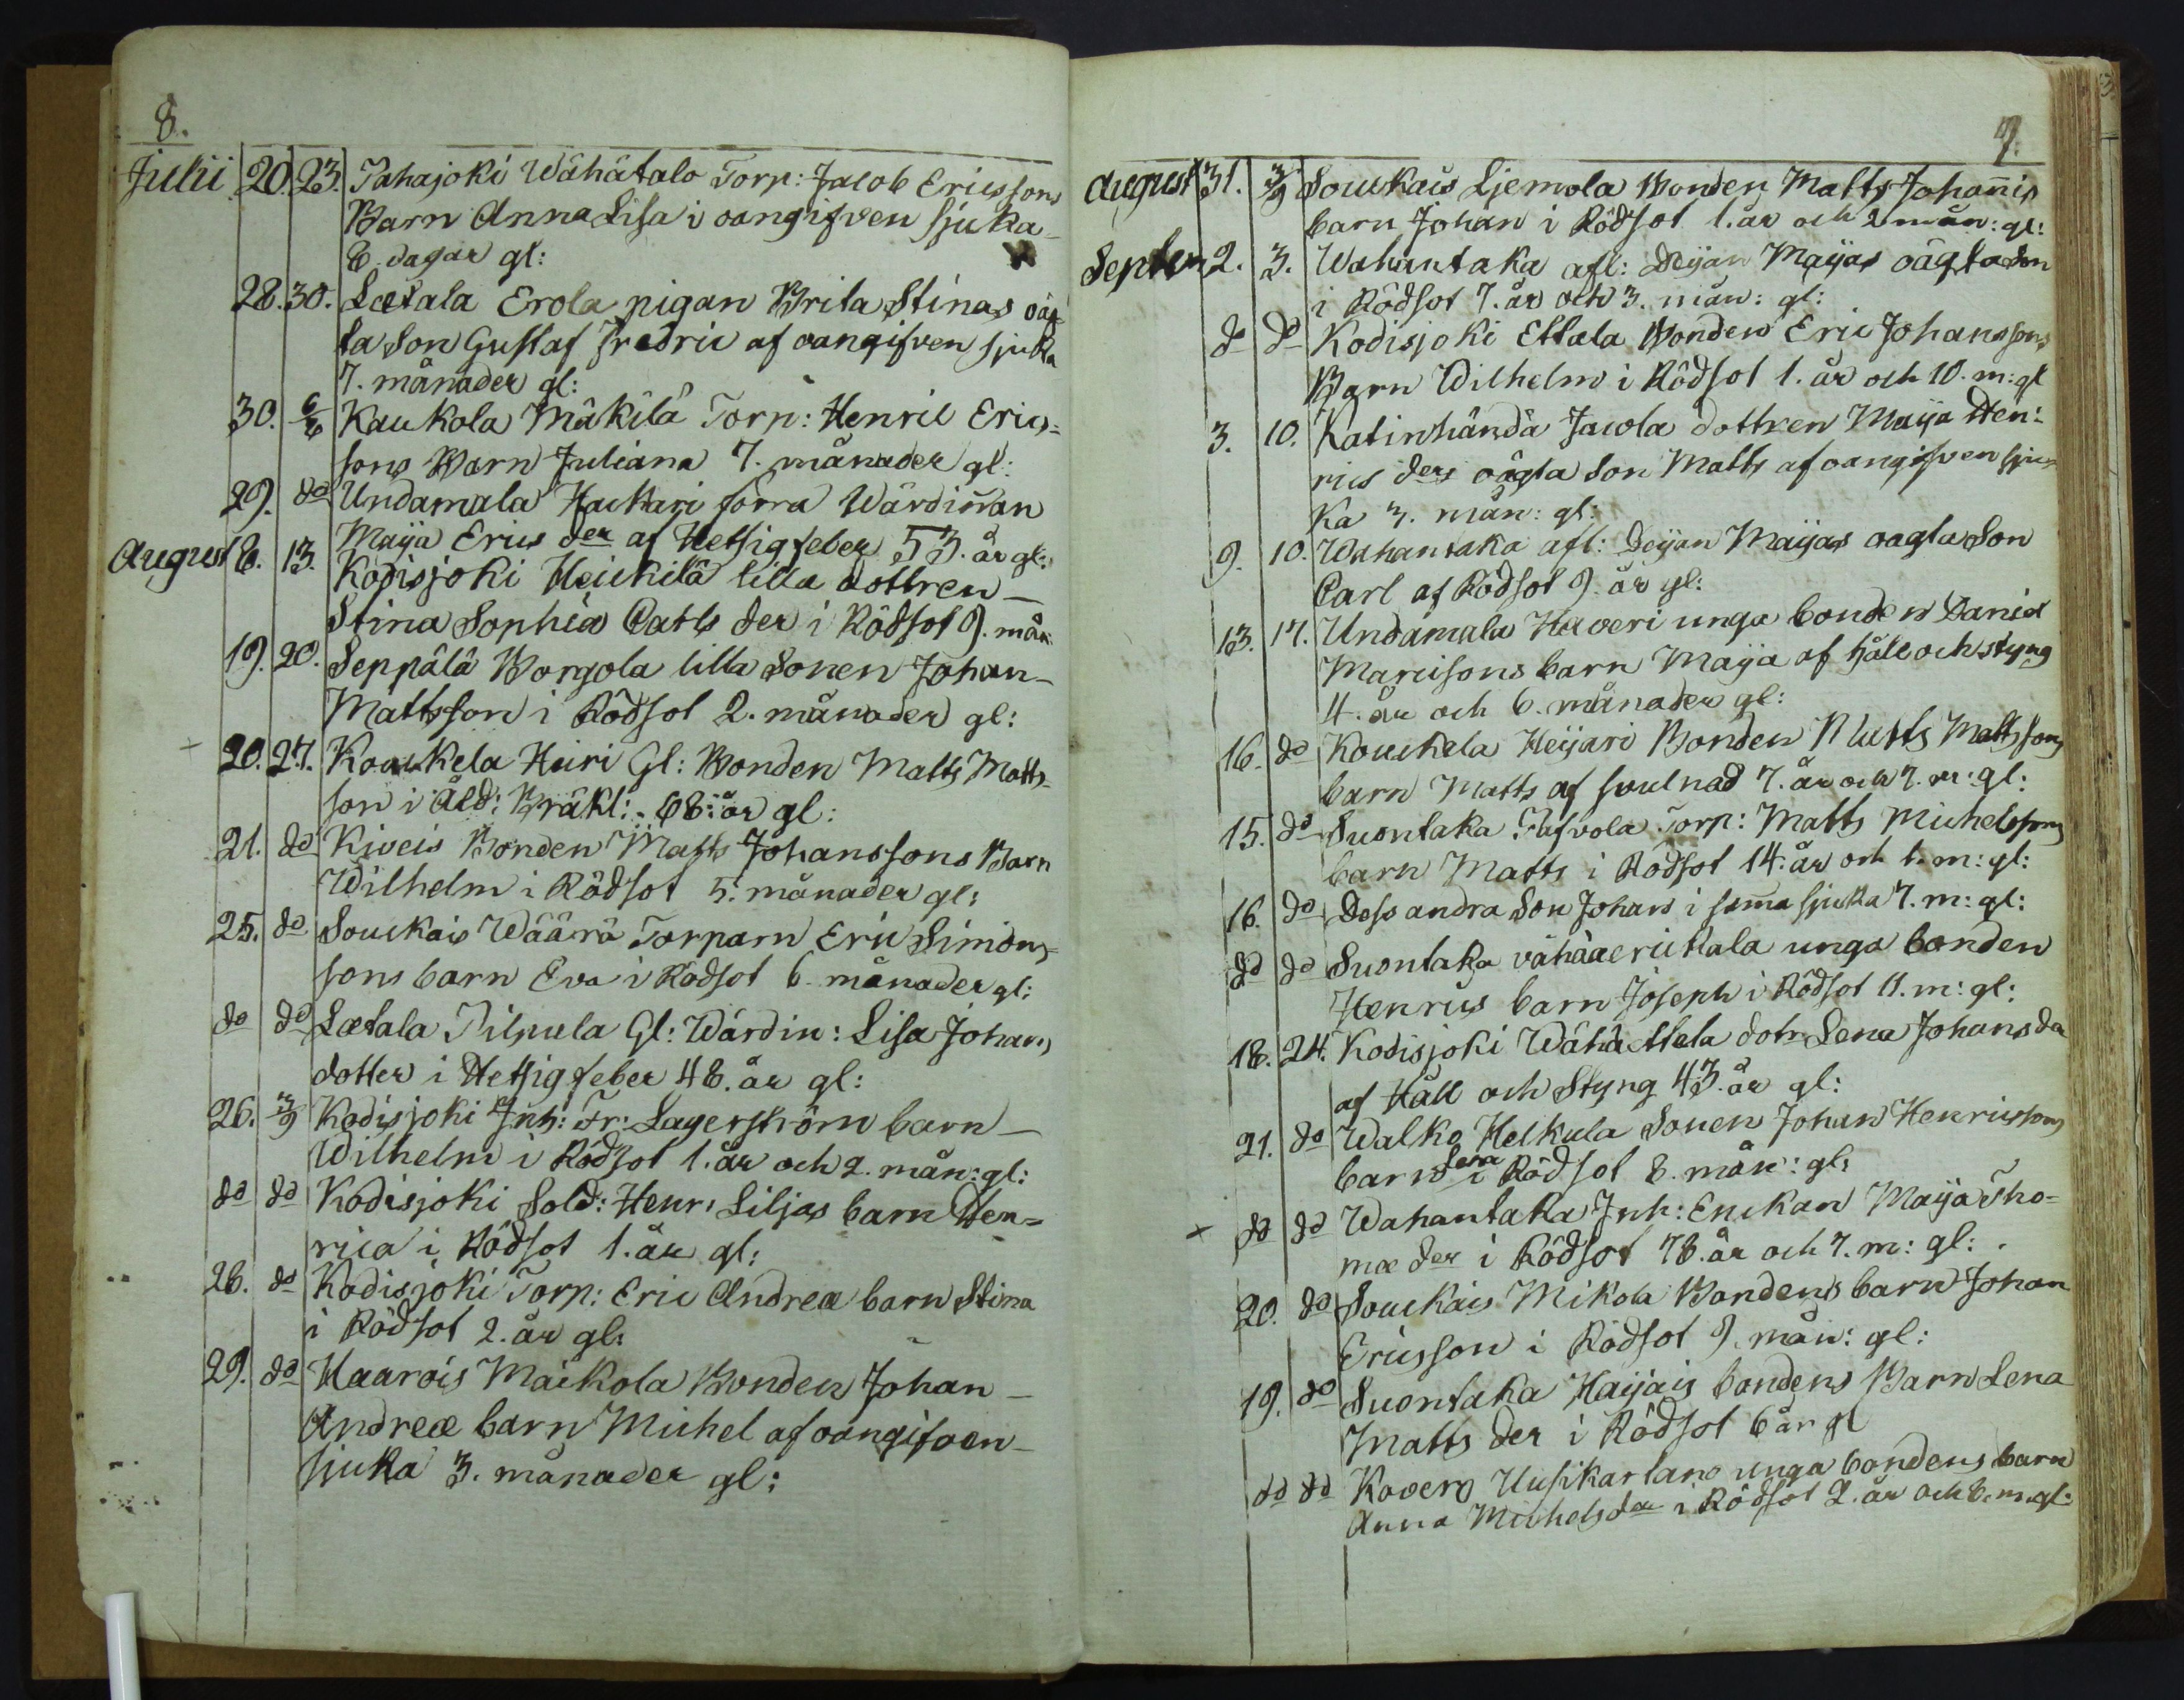 8.
Julii 20. 23. Pahajoki Wähätalo Torp: Jacob Ericssons
Barn Anna Lisa i oangifven sjuka
8. dagar gl:
28. 30. Lætala Erola pigan Brita Stinas oäg
ta Son Gustaf Fredric af oangifven sjuka
7. månader gl:
30. 6/8 Kaukola Mäkilä Torp: Henric Erics=
sons Barn Juliana 7. månader gl:
29. do Undamala Hackari förra Wärdiñan
Maija Erics der af Hetsigfeber 53. år gl:
August 8. 13. Kodisjoki Heickilä lilla dottren
Stina Sophia Carls der i Rödsot 9. mån:
19. 20. Seppälä Borgola lilla Sonen Johan
Mattsson i Rödsot 2. månader gl:
+ 20. 27. Koukela Hiiri Gl: Bonden Matts Matts
son i Åld: Bräkl: 68. år gl:
21. do Kiveis Bonden Matts Johanssons Barn
Wilhelm i Rödsot 5. månader gl:
25. do Souckais Wäärä Torparn Eric Simons
sons barn Eva i Rödsot 6. månader gl:
do do Lætala Pilpula Gl: Wärdin: Lisa Johans
dotter i Hetsigfeber 48. år gl:
26. 3/9 Kodisjoki Inh: Fr: Lagerström barn
Wilhelm i Rödsot 1. år och 2. mån: gl:
do do Kodisjoki Sold: Henr: Liljas barn Hen=
rica i Rödsot 1. år gl:
28. do Kodisjoki Torp: Eric Andreæ barn Stina
i Rödsot 2. år gl:
29. do Haarois Maikola Bonden Johan
Andreæ barn Michel af oangifven
sjuka 3. månader gl:
9.
August 31. 3/9 Souckais Ljemola Bonden Matts Johañis
barn Johan i Rödsot 1. år och 2 mån: gl:
Septem 2. 3. Wahantaka afl: Deijan Maijas oägta Son
i Rödsot 7. år och 3. mån: gl:
do do Kodisjoki Ettala Bonden Eric Johanssons
Barn Wilhelm i Rödsot 1. år och 10. m: gl
3. 10. Katinhändä Jacola dottren Maija Hen=
rics ders oägta Son Matts af oangifven sju=
ka 3. mån: gl:
9. 10. Wahantaka afl: Deijan Maijas oagta Son
Carl af Rödsot 9. år gl:
13. 17. Undamala Haveri unga bonden Daniel
Marcisons barn Maija af håll och styng
4. år och 6. månader gl:
16. do Kouckela Heijari Bonden Matts Mattssons
barn Matts af svulnad 7. år och 7. m: gl:
15. do Suontaka Torp: Matts Michelssons
barn Matts i Rödsot 14. år och 1. m: gl:
16. do Dess andra Son Johan i sam̃a sjuka 7. m: gl:
do do Suontaka vähäaerickala unga bonden
Henrics barn Joseph i Rödsot 11. m: gl:
18. 24. Kodisjoki Wähäettala dotr Lena Johans der
af Håll och Styng 43. år gl:
21. do Walko Helkula Sonen Johan Henricssons
barn Lena i Rödsot 8. mån: gl:
+ do do Wahantaka Inh: Enckan Maija Tho=
mæ der i Rödsot 78. år och 7. m: gl:
20. do Souckais Mikola Bondens barn Johan
Ericsson i Rödsot 9. mån: gl:
19. do Suontaka Haijais bondens Barn Lena
Matts der i Rödsot 6 år gl
do do Kovero Uusikartano unga bondens barn
Anna Michels der i Rödsot 2. år och 6. m: gl: